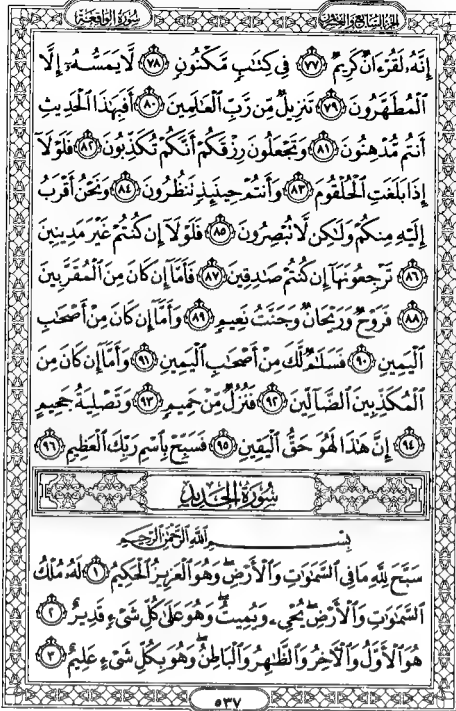 الجزء السابع والعشرون سورة الواقعة
إِنَّهُۥ لَقُرْءَانٌ كَرِيمٌ ٧٧ فِى كِتَـٰبٍ مَّكْنُونٍ ٧٨ لَّا يَمَسُّهُۥٓ إِلَّا
ٱلْمُطَهَّرُونَ ٧٩ تَنزِيلٌ مِّن رَّبِّ ٱلْعَـٰلَمِينَ ٨٠ أَفَبِهَـٰذَا ٱلْحَدِيثِ
أَنتُم مُّدْهِنُونَ ٨١ وَتَجْعَلُونَ رِزْقَكُمْ أَنَّكُمْ تُكَذِّبُونَ ٨٢ فَلَوْلَآ
إِذَا بَلَغَتِ ٱلْحُلْقُومَ ٨٣ وَأَنتُمْ حِينَئِذٍ تَنظُرُونَ ٨٤ وَنَحْنُ أَقْرَبُ
إِلَيْهِ مِنكُمْ وَلَـٰكِن لَّا تُبْصِرُونَ ٨٥ فَلَوْلَآ إِن كُنتُمْ غَيْرَ مَدِينِينَ
٨٦ تَرْجِعُونَهَآ إِن كُنتُمْ صَـٰدِقِينَ ٨٧ فَأَمَّآ إِن كَانَ مِنَ ٱلْمُقَرَّبِينَ
٨٨ فَرَوْحٌ وَرَيْحَانٌ وَجَنَّتُ نَعِيمٍ ٨٩ وَأَمَّآ إِن كَانَ مِنْ أَصْحَـٰبِ
ٱلْيَمِينِ ٩٠ فَسَلَـٰمٌ لَّكَ مِنْ أَصْحَـٰبِ ٱلْيَمِينِ ٩١ وَأَمَّآ إِن كَانَ مِنَ
ٱلْمُكَذِّبِينَ ٱلضَّآلِّينَ ٩٢ فَنُزُلٌ مِّنْ حَمِيمٍ ٩٣ وَتَصْلِيَةُ جَحِيمٍ
٩٤ إِنَّ هَـٰذَا لَهُوَ حَقُّ ٱلْيَقِينِ ٩٥ فَسَبِّحْ بِٱسْمِ رَبِّكَ ٱلْعَظِيمِ ٩٦
سُورَةُ الحَدِيدِ
بِسْمِ ٱللَّهِ ٱلرَّحْمَـٰنِ ٱلرَّحِيمِ
سَبَّحَ لِلَّهِ مَا فِى ٱلسَّمَـٰوَٰتِ وَٱلْأَرْضِ ۖ وَهُوَ ٱلْعَزِيزُ ٱلْحَكِيمُ ١ لَهُۥ مُلْكُ
ٱلسَّمَـٰوَٰتِ وَٱلْأَرْضِ ۖ يُحْىِۦ وَيُمِيتُ ۖ وَهُوَ عَلَىٰ كُلِّ شَىْءٍ قَدِيرٌ ٢
هُوَ ٱلْأَوَّلُ وَٱلْـَٔاخِرُ وَٱلظَّـٰهِرُ وَٱلْبَاطِنُ ۖ وَهُوَ بِكُلِّ شَىْءٍ عَلِيمٌ ٣
٥٣٧